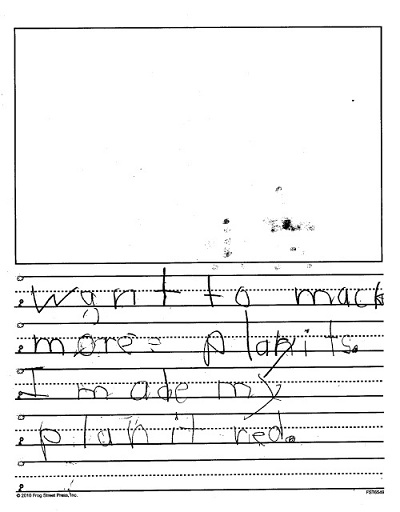 want to mack
more plan its.
I made my
plan it red.
© 2010 Frog Street Press, Inc.